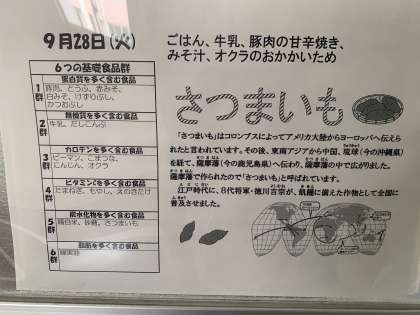 9月28日(火)
ごはん、牛乳、豚肉の甘辛焼き、
みそ汁、オクラのおかかいため
6つの基礎食品群
1群
蛋白質を多く含む食品
豚肉、とうふ、赤みそ、
白みそ、けずりぶし、
かつおぶし
2群
無機質を多く含む食品
牛乳、だしこんぶ
3群
カロテンを多く含む食品
ピーマン、こまつな、
にんじん、オクラ
4群
ビタミンCを多く含む食品
たまねぎ、もやし、えのきたけ
5群
炭水化物を多く含む食品
精白米、砂糖、さつまいも
6群
脂肪を多く含む食品
さつまいも
「さつまいも」はコロンブスによってアメリカ大陸からヨーロッパへ伝えら
れたと言われています。その後、東南アジアから中国、琉球(今の沖縄県)
を経て、薩摩藩(今の鹿児島県)へ伝わり、薩摩藩の中で広がりました。
薩摩藩で作られたので「さつまいも」と呼ばれています。
江戸時代に、8代将軍・徳川吉宗が、飢饉に備えた作物として全国に
普及させました。